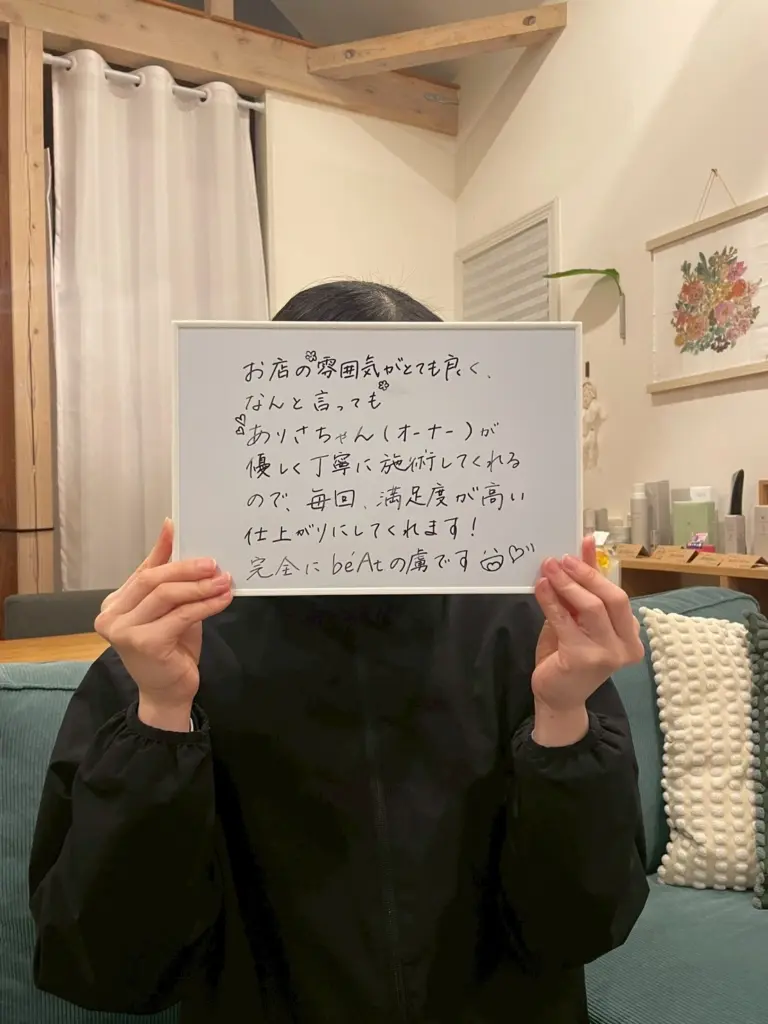 お店の雰囲気がとても良く、
なんと言っても
ありさちゃん(オーナー)が
優しく丁寧に施術してくれる
ので、毎回、満足度が高い
仕上がりにしてくれます!
完全に béAtの虜です